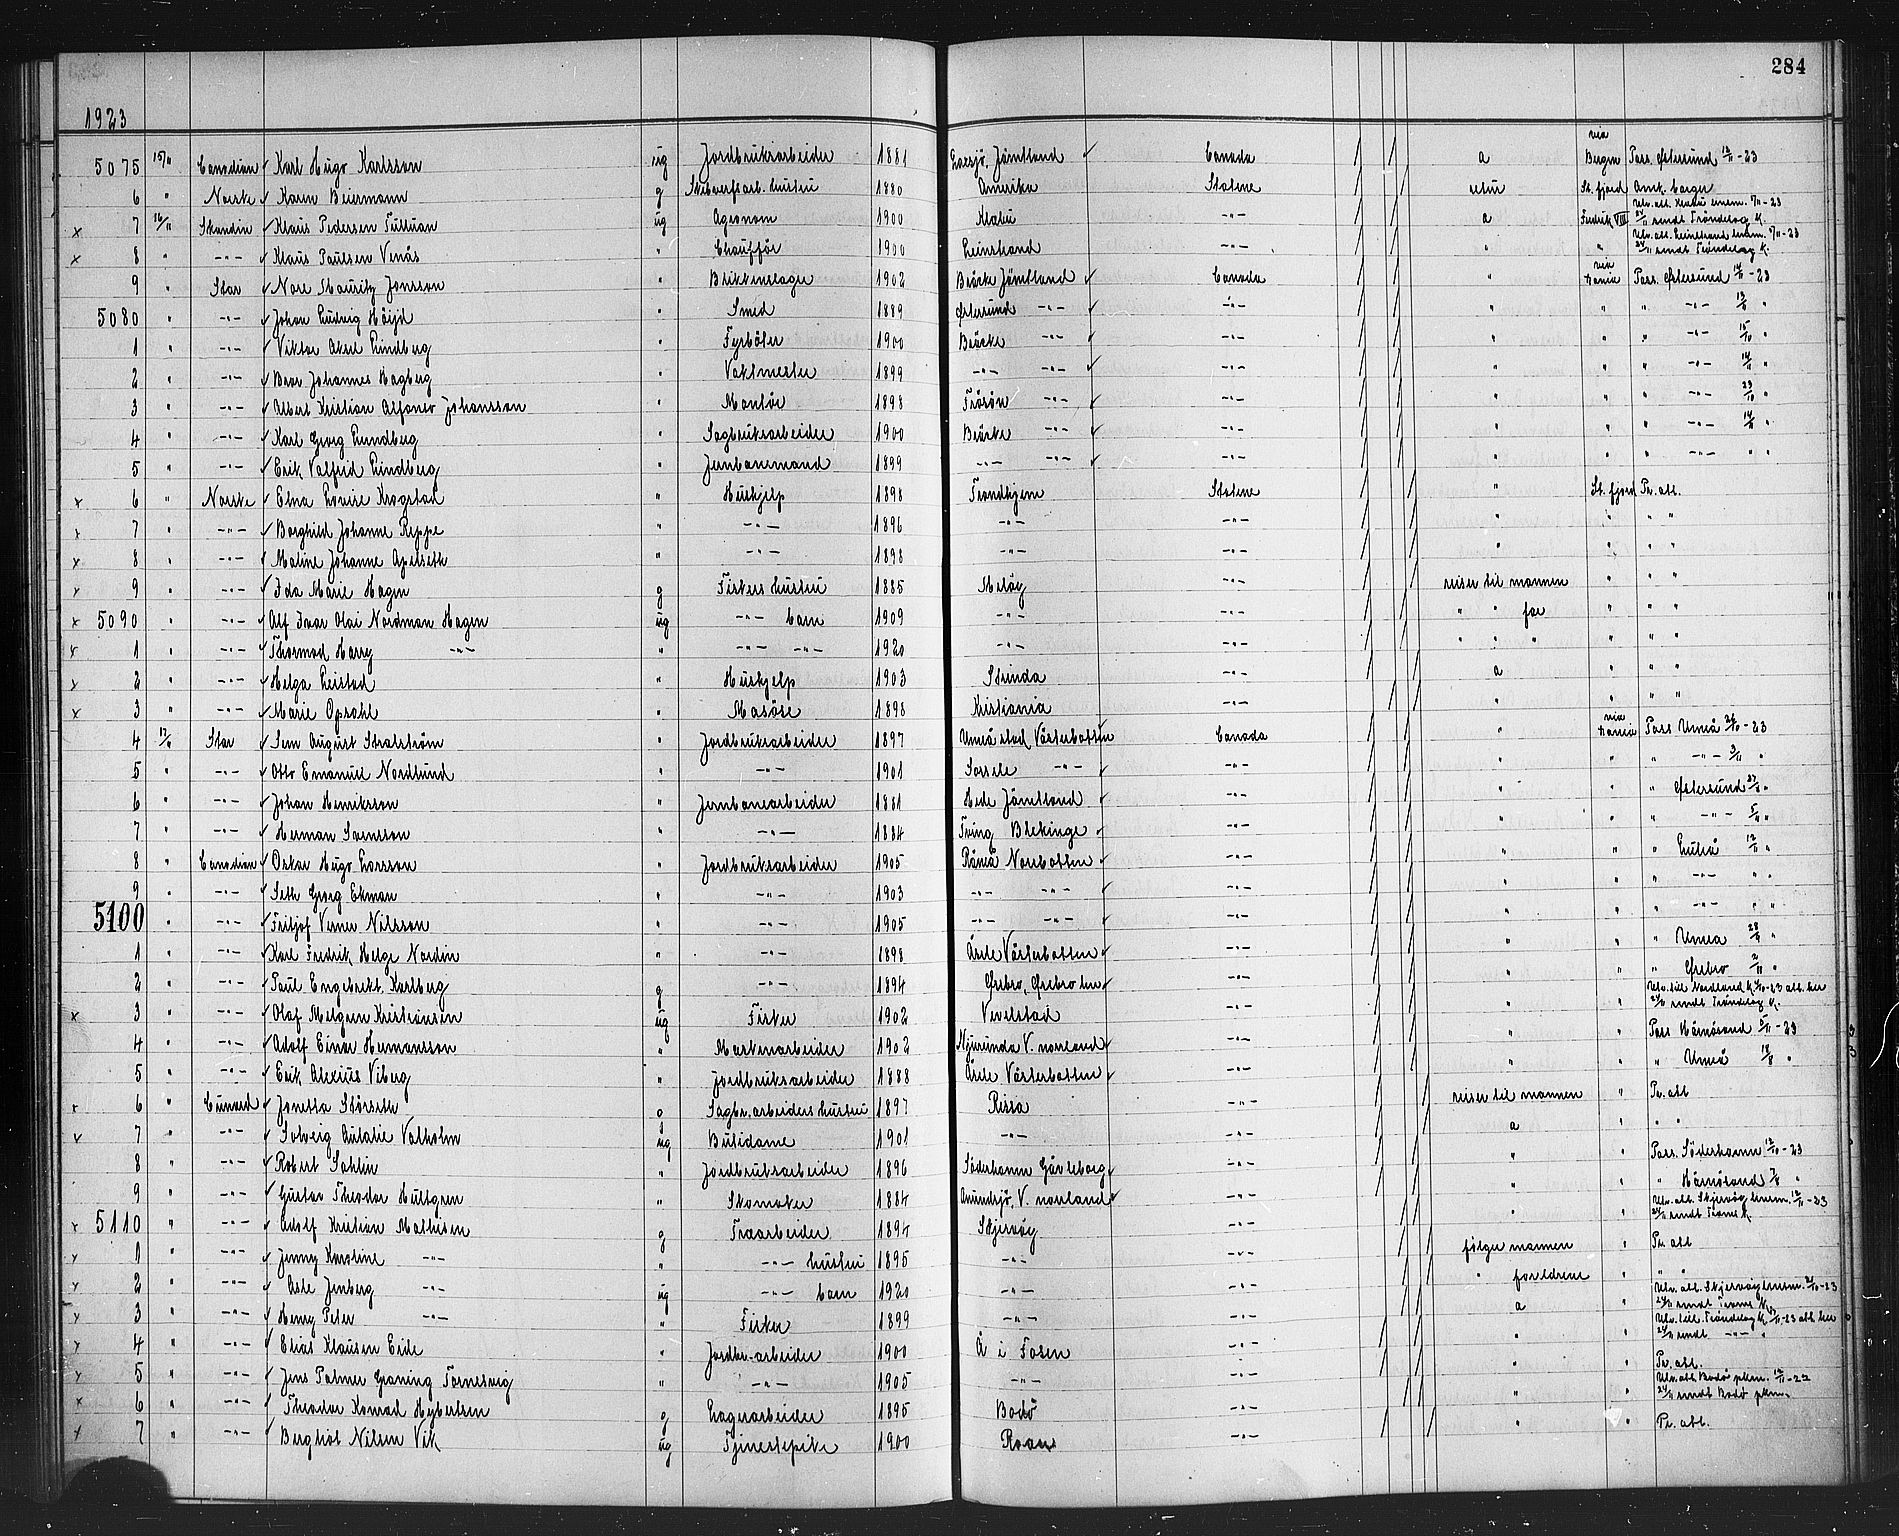 284
1923
5075 15/11 Canadian Karl Hugo Karlsson ug Jordbruksarbeider 1881 Jämtland Canada a via Bergen Pass. Østersund 12/11-23
6 " Norske Karen Beiermann g 1880 Amerika Statene retur St. fjord Amk. borger
x 7 16/11 Skandin Klaus Pedersen ug Agronom 1900 Klæbu -"- a Fredrik VIII Utv. att. Klæbu lensm. 7/11-23 sendt Trøndelag K.
x 8 " -"- Klaus Paulsen Venås " Chaufför 1900 Leinstrand -"- " " Utv. att. Leinstrand lensm. 7/11-23 sendt Trøndelag K.
9 " Star Nore Mauritz Jonsson " 1902 Bräcke Jämtland Canada " via Pass. Østersund 14/11-23
5080 " -"- Johan Ludvig Höijd " Smed 1889 Østersund -"- -"- " " " -"- "
1 " -"- Viktor Aksel Lindberg " Fyrböter 1900 Bräcke -"- -"- " " " -"- 15/10 "
2 " -"- Bror Johannes Hagberg " Vaktmester 1899 -"- -"- -"- " " " -"- 14/11 "
3 " -"- Albert Kristian Alfonso Johansson " Montör 1898 Frösön -"- -"- " " " -"- 29/10 "
4 " -"- Karl Georg Lundberg " Sagbruksarbeider 1900 Bräcke -"- -"- " " " -"- 14/11 "
5 " -"- Erik Valfrid Lindberg " Jernbanemand 1899 -"- -"- -"- " " " -"- " "
x 6 " Norske Elna Lovise Krogstad " Huskjelp 1898 Trondhjem Statene " St. fjord Pr. att.
x 7 " -"- Borghild Johanne Reppe " -"- 1896 -"- -"- " " " "
x 8 " -"- Maline Johanne Apelseth " -"- 1898 -"- -"- " " " "
x 9 " -"- Ida Marie Hagen g Fiskers hustru 1885 Meløy -"- reiser til mannen " " "
x 5090 " -"- Alf Ivar Olai Nordman Hagen ug -"- barn 1909 -"- -"- " " far " " "
x 1 " -"- Thormod Harry -"- " -"- -"- 1920 -"- -"- " " " " " "
x 2 " -"- Helga Leistad " Huskjelp 1903 Strinda -"- a " " "
x 3 " -"- Marie Opsahl " Masöse 1898 Kristiania -"- " " " "
4 17/11 Star Sven August Stralström " Jordbruksarbeider 1897 Umeå stad, Västerbotten Canada " via Pass Umeå 26/10-23
5 " -"- Otto Emanuel Nordlund " -"- 1901 Sorsele -"- -"- " " " -"- 3/11 "
6 " -"- Johan Henriksson " Jernbanearbeider 1881 Hede Jämtland -"- " " " Østersund "
7 " -"- Herman Svensson " -"- 1884 Tving Blekinge -"- " " " -"- "
8 " Canadian Oskar Hugo Larsson " Jordbruksarbeider 1905 Råneå Norrbotten -"- " " " Luleå 12/11 "
9 " -"- Seth Georg Ekman " -"- 1903 -"- -"- -"- " " " -"- " "
5100 " -"- Fritjof Verner Nilsson " -"- 1905 -"- -"- -"- " " " -"- " "
1 " -"- Karl Fredrik Helge Nordin " -"- 1898 Åsele Västerbotten -"- " " " Umeå "
2 " -"- Paul Engelbrekt Karlberg g -"- 1894 Ørebro, Ørebro len -"- " " " Ørebro 2/11 "
x 3 " -"- Olaf Melgren Kristiansen ug Fisker 1902 Vevelstad -"- " " Utv. till. Nordland K. -23 att. her sendt Trøndelag K.
4 " -"- Adolf Einar Hermansson " 1902 Njurunda V. norrland -"- " Pass Härnösand 5/11-23
5 " -"- Erik Alexius Viberg " Jordbruksarbeider 1888 Åsele Västerbotten -"- " " Umeå "
x 6 " Cunard Jonetta Störseth g Sagbr. arbeiders hustru 1897 Rissa -"- reiser til mannen " Pr. att
x 7 " -"- Solveig Aulalie Valholm ug Butidame 1901 -"- -"- a " " "
8 " -"- Robert Sahlin " Jordbruksarbeider 1896 Söderhamn Gävleborg -"- " " Pass. Söderhamn 12/10-23
9 " -"- Gustav Theodor Hultgren " Skomaker 1884 Anundsjö, V. norrland -"- " " " Härnösand "
x 5110 " -"- Adolf Kristian Mathisen g Træarbeider 1894 Skjervøy -"- " " Utv. att. Skjervøy lensm. 12/10-23 sendt Troms K.
x 1 " -"- Jenny Karoline -"- " -"- hustru 1895 -"- -"- følger mannen " Pr. att
x 2 " -"- Asle Jenberg -"- ug -"- barn 1920 -"- -"- " foreldrene " " "
x 3 " -"- Henry Peter -"- " Fisker 1899 -"- -"- a " Utv. att. Skjervøy lensm. -23 sendt Troms K.
x 4 " -"- Elias Klausen Eide " Jordbr-arbeider 1900 Å i Fosen -"- " " Utv. till. Trøndelag K. -23 att. her sendt -"- "
x 5 " -"- Jens Palmer Graning Tarnesvig " -"- 1905 -"- -"- " " Pr. att.
x 6 " -"- Theodor Konrad Hybertsen g Lagerarbeider 1895 Bodö -"- " " Utv. att. Bodø pkm. sendt Bodø pkm.
x 7 " -"- Berghot Nilsen Vik ug Tjenestepike 1900 Roan -"- " " Pr. att.